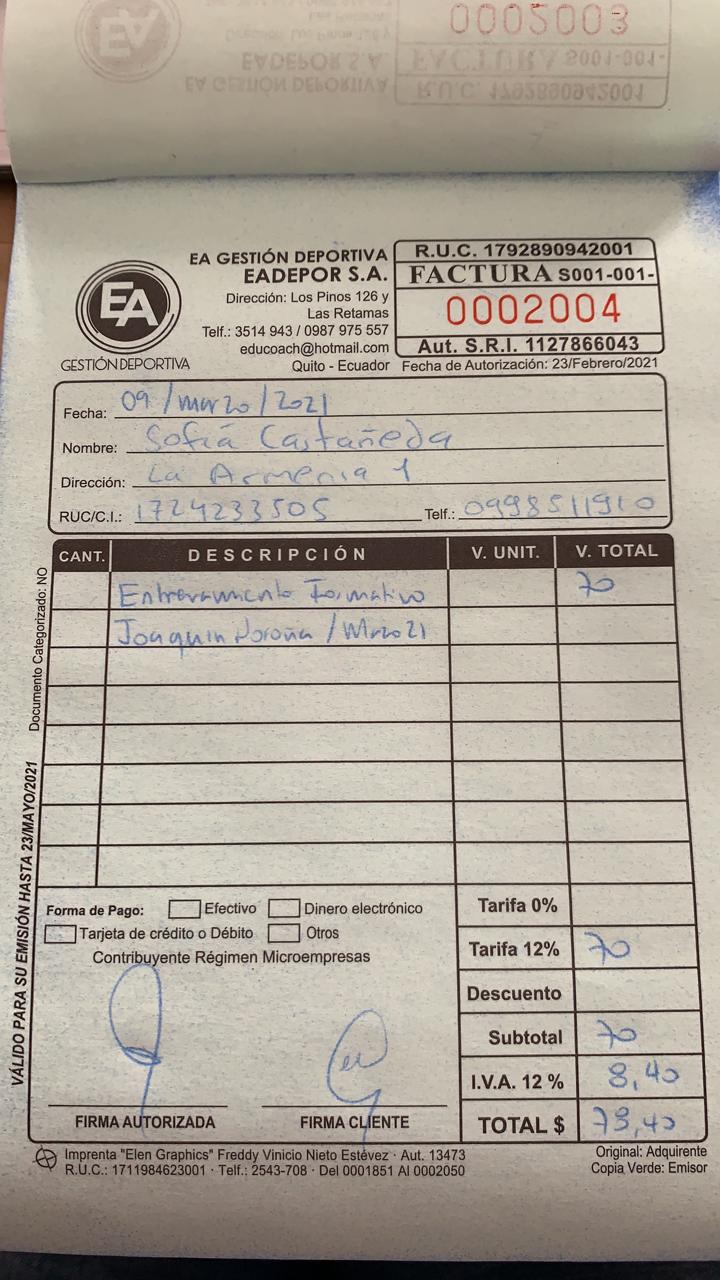 0002003
FACTURA S001-001-
R.U.C. 1792890942001
EADEPOR S.A.
EA GESTIÓN DEPORTIVA
EA
GESTIÓN DEPORTIVA
EA GESTIÓN DEPORTIVA
EADEPOR S.A.
Dirección: Los Pinos 126 y
Las Retamas
Telf.: 3514 943 / 0987 975 557
educoach@hotmail.com
Quito - Ecuador
R.U.C. 1792890942001
FACTURA S001-001-
0002004
Aut. S.R.I. 1127866043
Fecha de Autorización: 23/Febrero/2021
Fecha: 09/marzo/2021
Nombre: Sofía Castañeda
Dirección: La Armenia 1
RUC/C.I.: 1724233505 Telf.: 0998511910
CANT. DESCRIPCIÓN V. UNIT. V. TOTAL
Entrenamiento Formativo 70
Joaquin Noroña / Marzo 21
Documento Categorizado: NO
VÁLIDO PARA SU EMISIÓN HASTA 23/MAYO/2021
Forma de Pago: Efectivo Dinero electrónico
Tarjeta de crédito o Débito Otros
Contribuyente Régimen Microempresas
FIRMA AUTORIZADA FIRMA CLIENTE
Tarifa 0%
Tarifa 12% 70
Descuento
Subtotal 70
I.V.A. 12 % 8,40
TOTAL $ 78,40
Imprenta "Elen Graphics" Freddy Vinicio Nieto Estévez · Aut. 13473
R.U.C.: 1711984623001 · Telf.: 2543-708 · Del 0001851 Al 0002050
Original: Adquirente
Copia Verde: Emisor